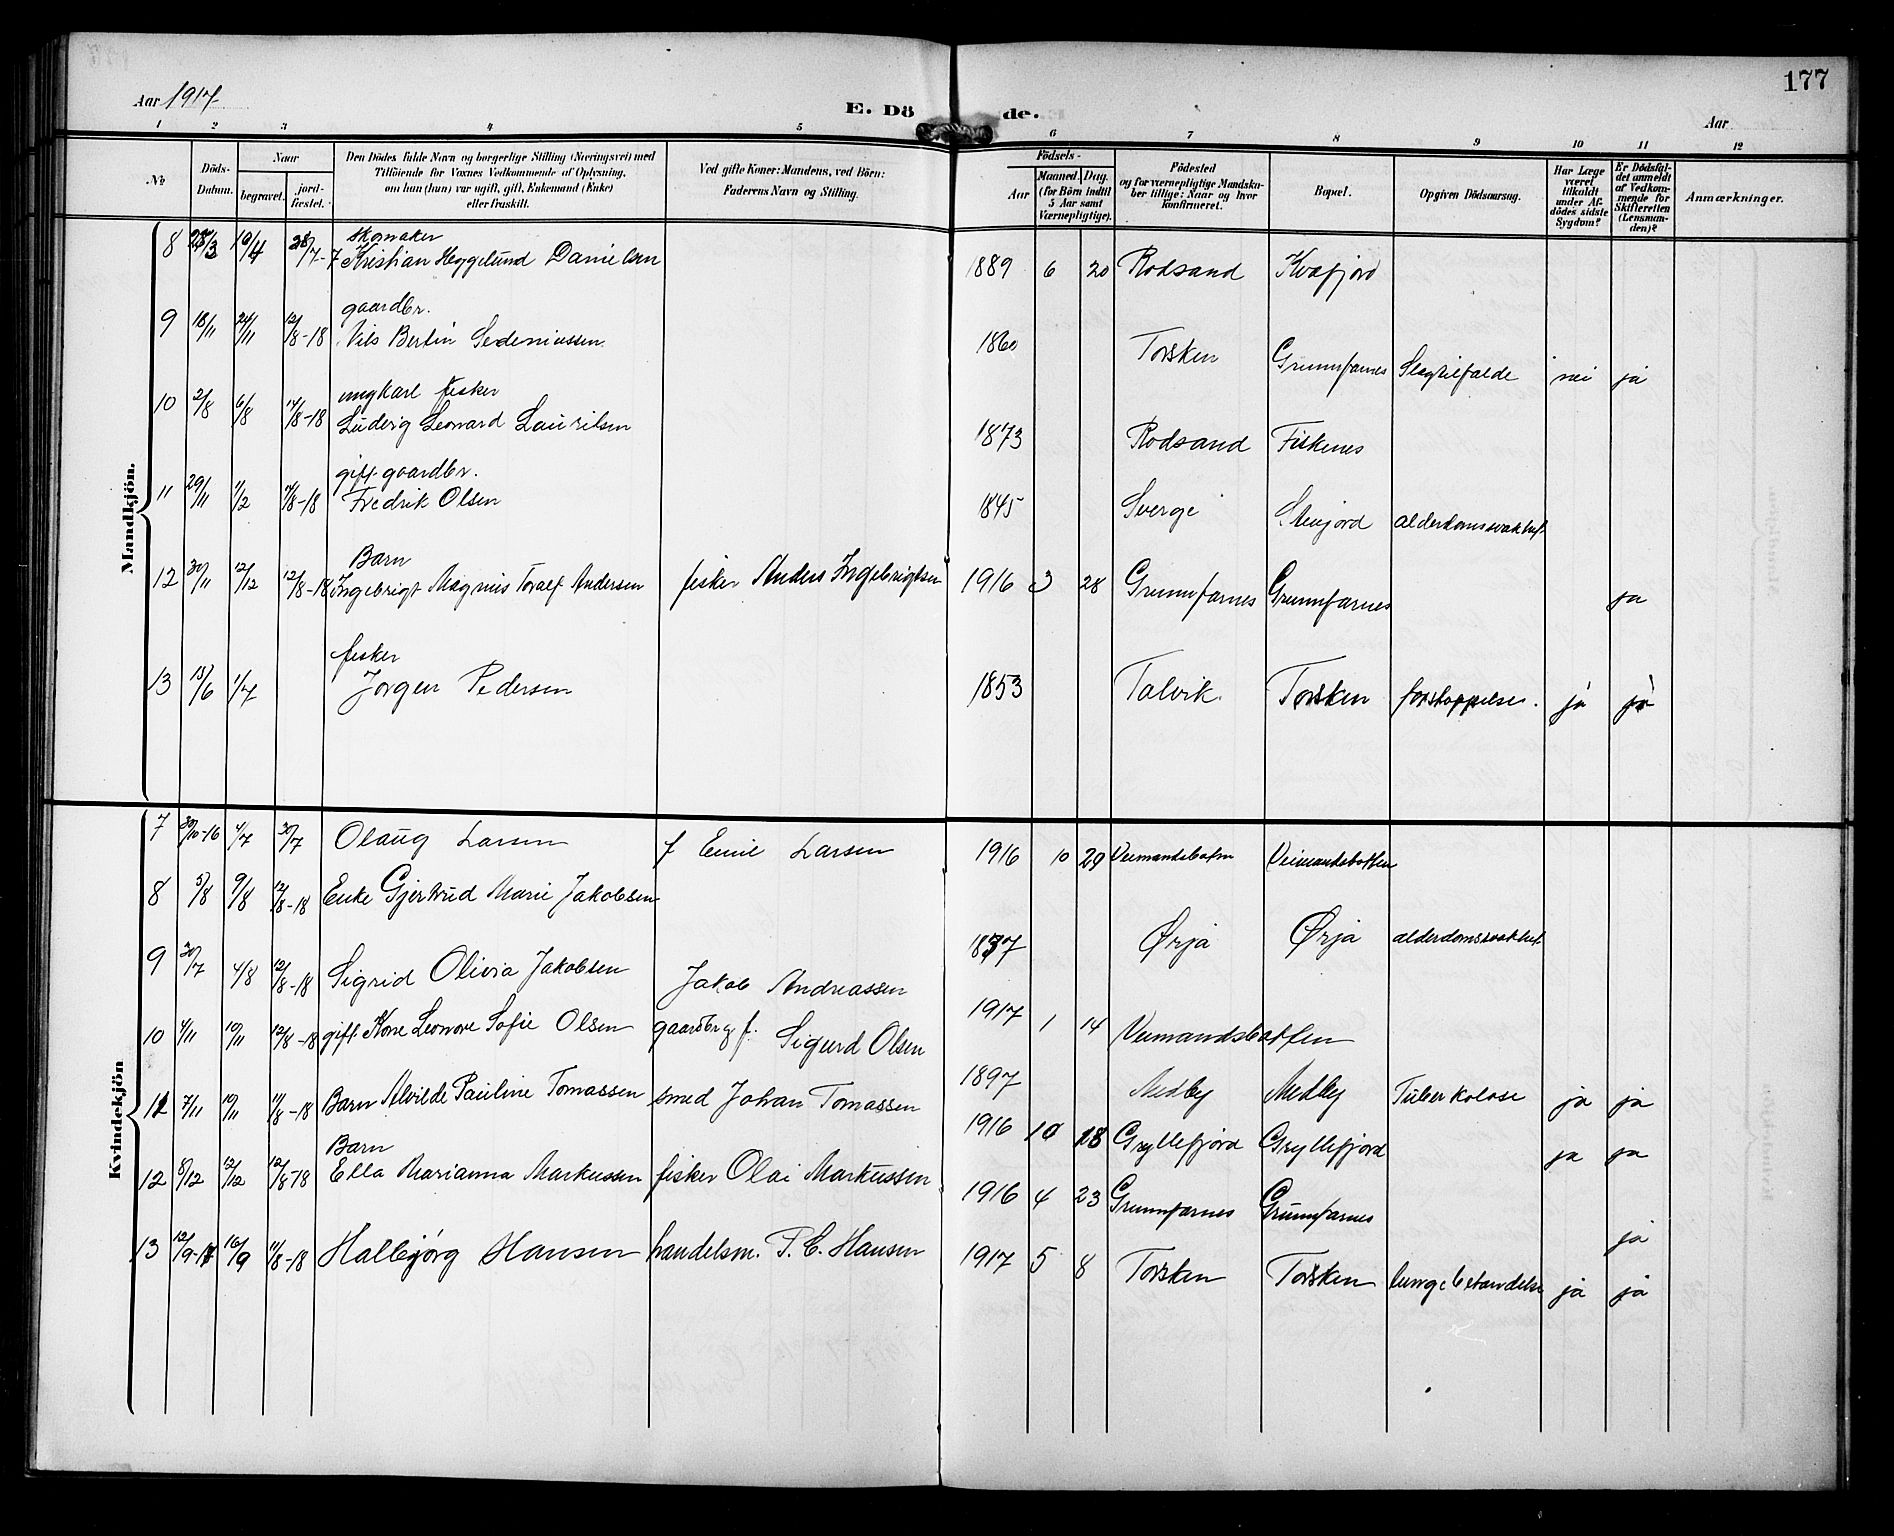 177
Aar 1917 E. Döde. Aar
1 2 3 4 5 6 7 8 9 10 11 12
No
Döds-Datum.
Naar
begravet. jord-fæstet.
Den Dödes fulde Navn og borgerlige Stilling (Næringsvei) med
Tilföiende for Voxnes Vedkommende af Oplysning,
om hun (hun) var ugift, gift, Enkemand (Enke)
eller fraskilt.
Ved gifte Koner: Mandens, ved Börn:
Faderens Navn og Stilling.
Födsels-
Aar
Maaned. Dag.
(for Börn indtil
5 Aar samt
Værnepligtige).
Födested
og for værnepligtige Mandska-
ber tillige: Naar og hvor
konfirmeret.
Bopæl.
Opgiven Dödsaarsag.
Har Læge
været
tilkaldt
under Af-
dödes sidste
Sygdom?
Er Dödsfal-
det anmeldt
af Vedkom-
mende for
Skifteretten
(Lensman-
den)?
Anmærkninger.
Mandkjön.
skomaker
8 19/4 28/7-7 Kristian Heggelund Danielsen 1889 6 20 Rodsand Kvæfjord
gaardbr.
9 18/11 24/11 12/8-18 Nils Bertin Sedeniussen 1860 Torsken Grunnfarnes Slagtilfælde nei ja
ungkarl fisker
10 2/8 6/8 14/8-18 Ludvig Leonard Lauritsen 1873 Rodsand Fiskenes
gift gaardbr.
11 29/11 1/2 11/8-18 Fredrik Olsen 1845 Sverge alderdomssvakhet
Barn
12 30/11 12/12 12/8-18 Ingebrigt Magnus Toralf Andersen fisker Anders Ingebrigtsen 1916 3 28 Grunnfarnes Grunnfarnes ja
fisker
13 15/6 1/7 Jorgen Pedersen 1853 Talvik Torsken forstoppelse. ja ja
Kvindekjön
7 30/10-16 4/7 30/7 Olaug Larsen f Emil Larsen 1916 10 29 Veimandsbotn Veimandsbotten
8 5/8 9/8 12/8-18 Enke Gjertrud Marie Jakobsen 1837 Ørja Ørja alderdomssvakhet
9 30/7 4/8 12/8-18 Sigrid Olivia Jakobsen Jakob Andreassen 1917 1 14 Veimandsbotten
10 4/11 10/11 12/8-18 gift Kone Leonore Sofie Olsen gaardbr og f. Sigurd Olsen 1897 Medby Medby Tuberkolose ja ja
11 7/11 10/11 11/8-18 Barn Alvilde Pauline Tomassen smed Johan Tomassen 1916 10 18 Gryllefjord Gryllefjord ja ja
Barn
12 8/12 12/12 12/8-18 Ella Marianna Markussen fisker Olai Markussen 1916 4 23 Grunnfarnes Grunnfarnes ja
13 12/9-17 16/9 11/8-18 Hallbjørg Hansen handelsm. P. C. Hansen 1917 5 8 Torsken Torsken lungebetændelse ja ja